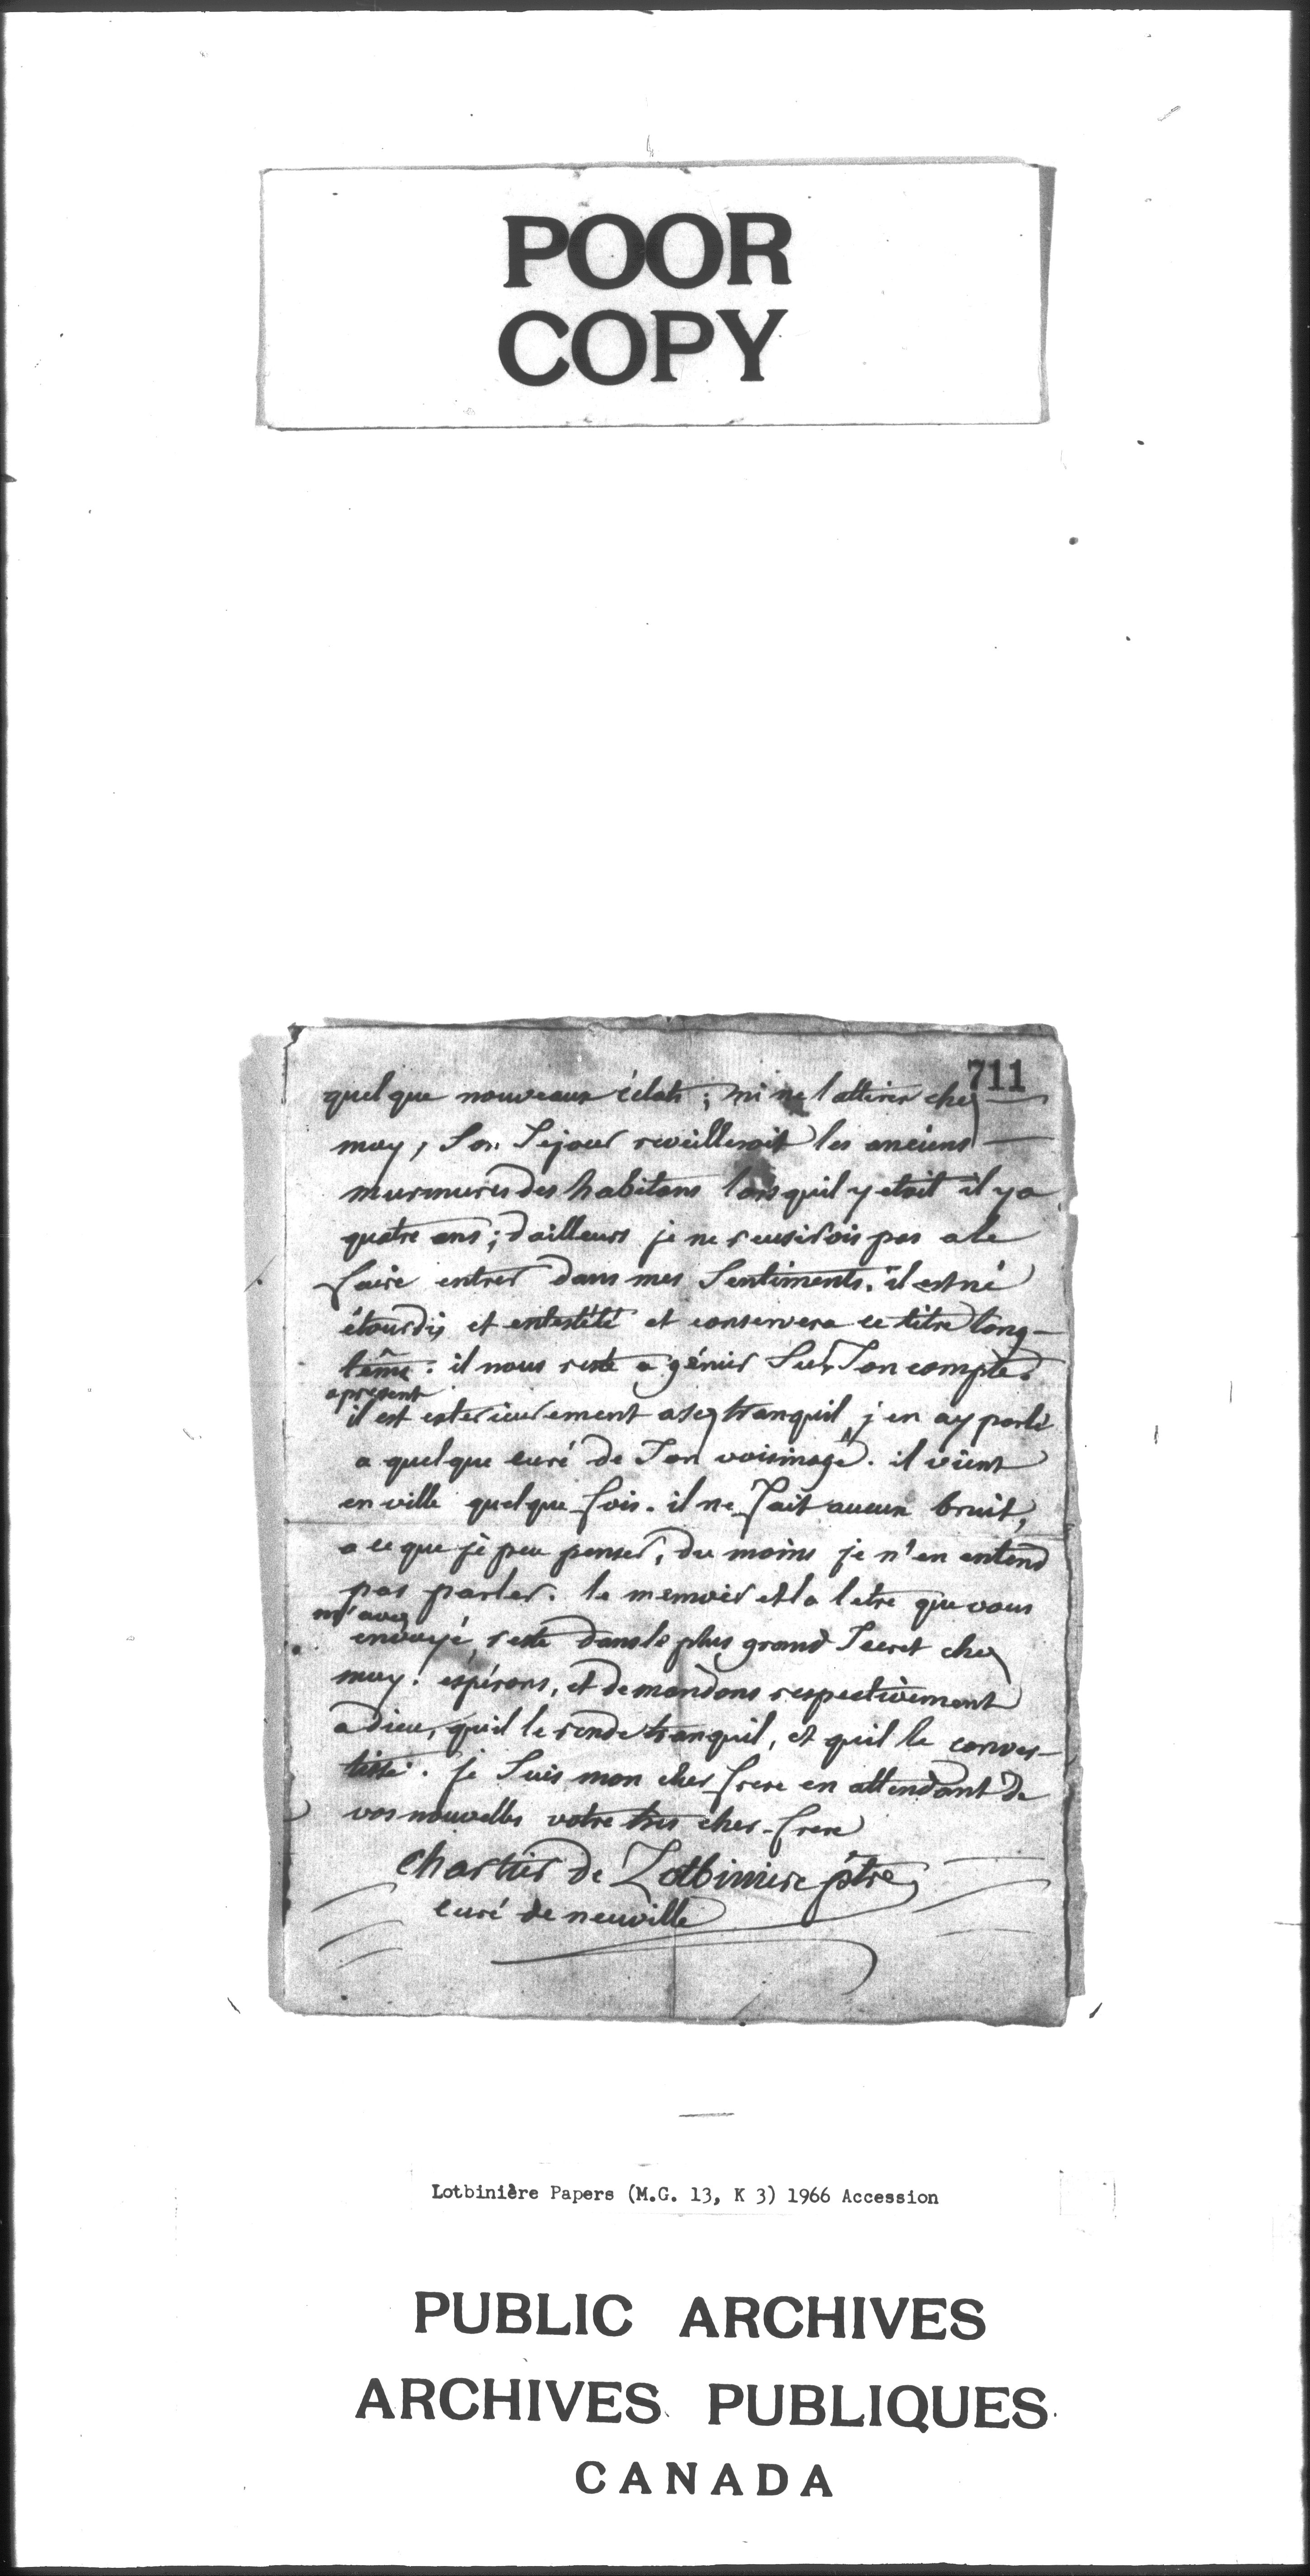 POOR
COPY
711
quelque nouveaux éclats ; ni ne l'attirer chez
moy, Son Sejour reveilleroit les anciens
murmures des habitans lorsquil y etoit il y a
quatre ans ; dailleurs je ne reusirois pas a le
faire entrer dans mes Sentiments. il est né
étourdis et entestété et conservera ce titre long-
tême : il nous reste a gémir Sur Son compte.
apresent
il est exterieurement asez tranquil, j'en ay parlé
a quelque curé de Son voisinage. il vient
en ville quelque fois. il ne fait aucun bruit,
a ce que je peu penser, du moins je n'en entend
pas parler. le memoir et la letre que vous
m'avez
envoyé, reste dans le plus grand Secret chez
moy. espérons, et demandons respectivement
a dieu, quil le rende tranquil, et quil le conver-
tisse. je Suis mon cher frere en attendant de
vos nouvelles votre tres cher frere
Chartier de Lotbiniere ptre
curé de neuville
Lotbinière Papers (M.G. 13, K 3) 1966 Accession
PUBLIC ARCHIVES
ARCHIVES PUBLIQUES
CANADA